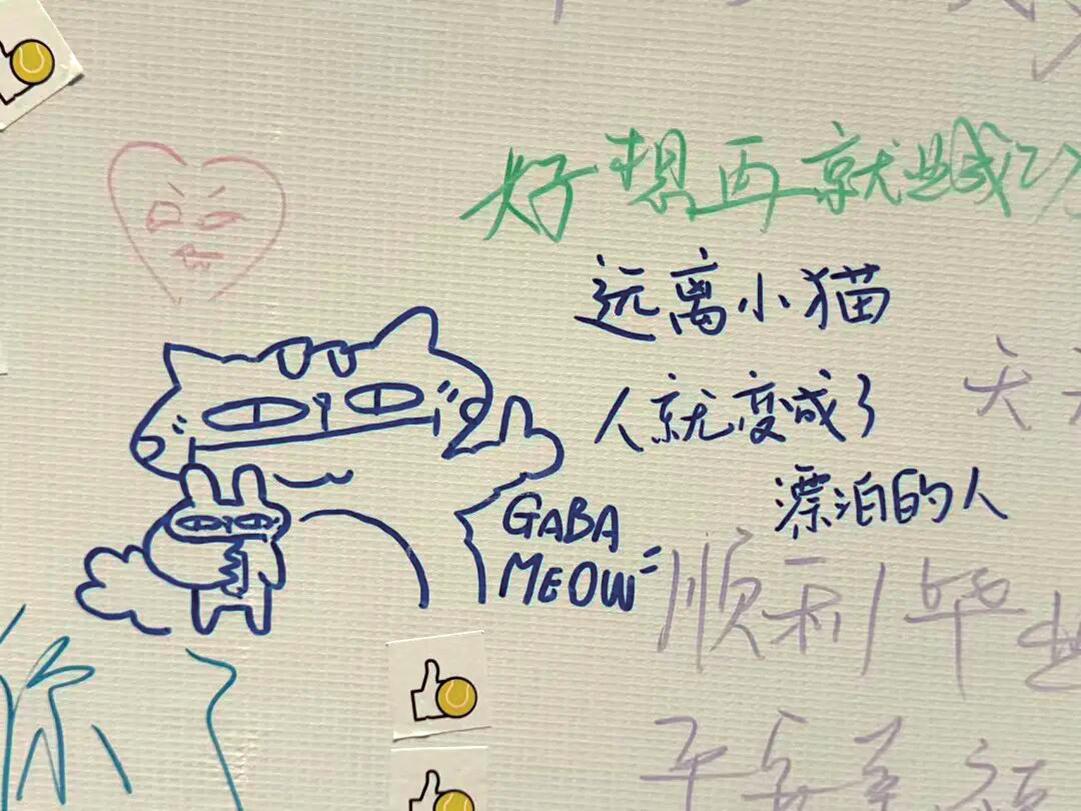 好想再就业成功
远离小猫
人就变成了
漂泊的人
GABA
MEOW
天天
顺利毕业
平安
你